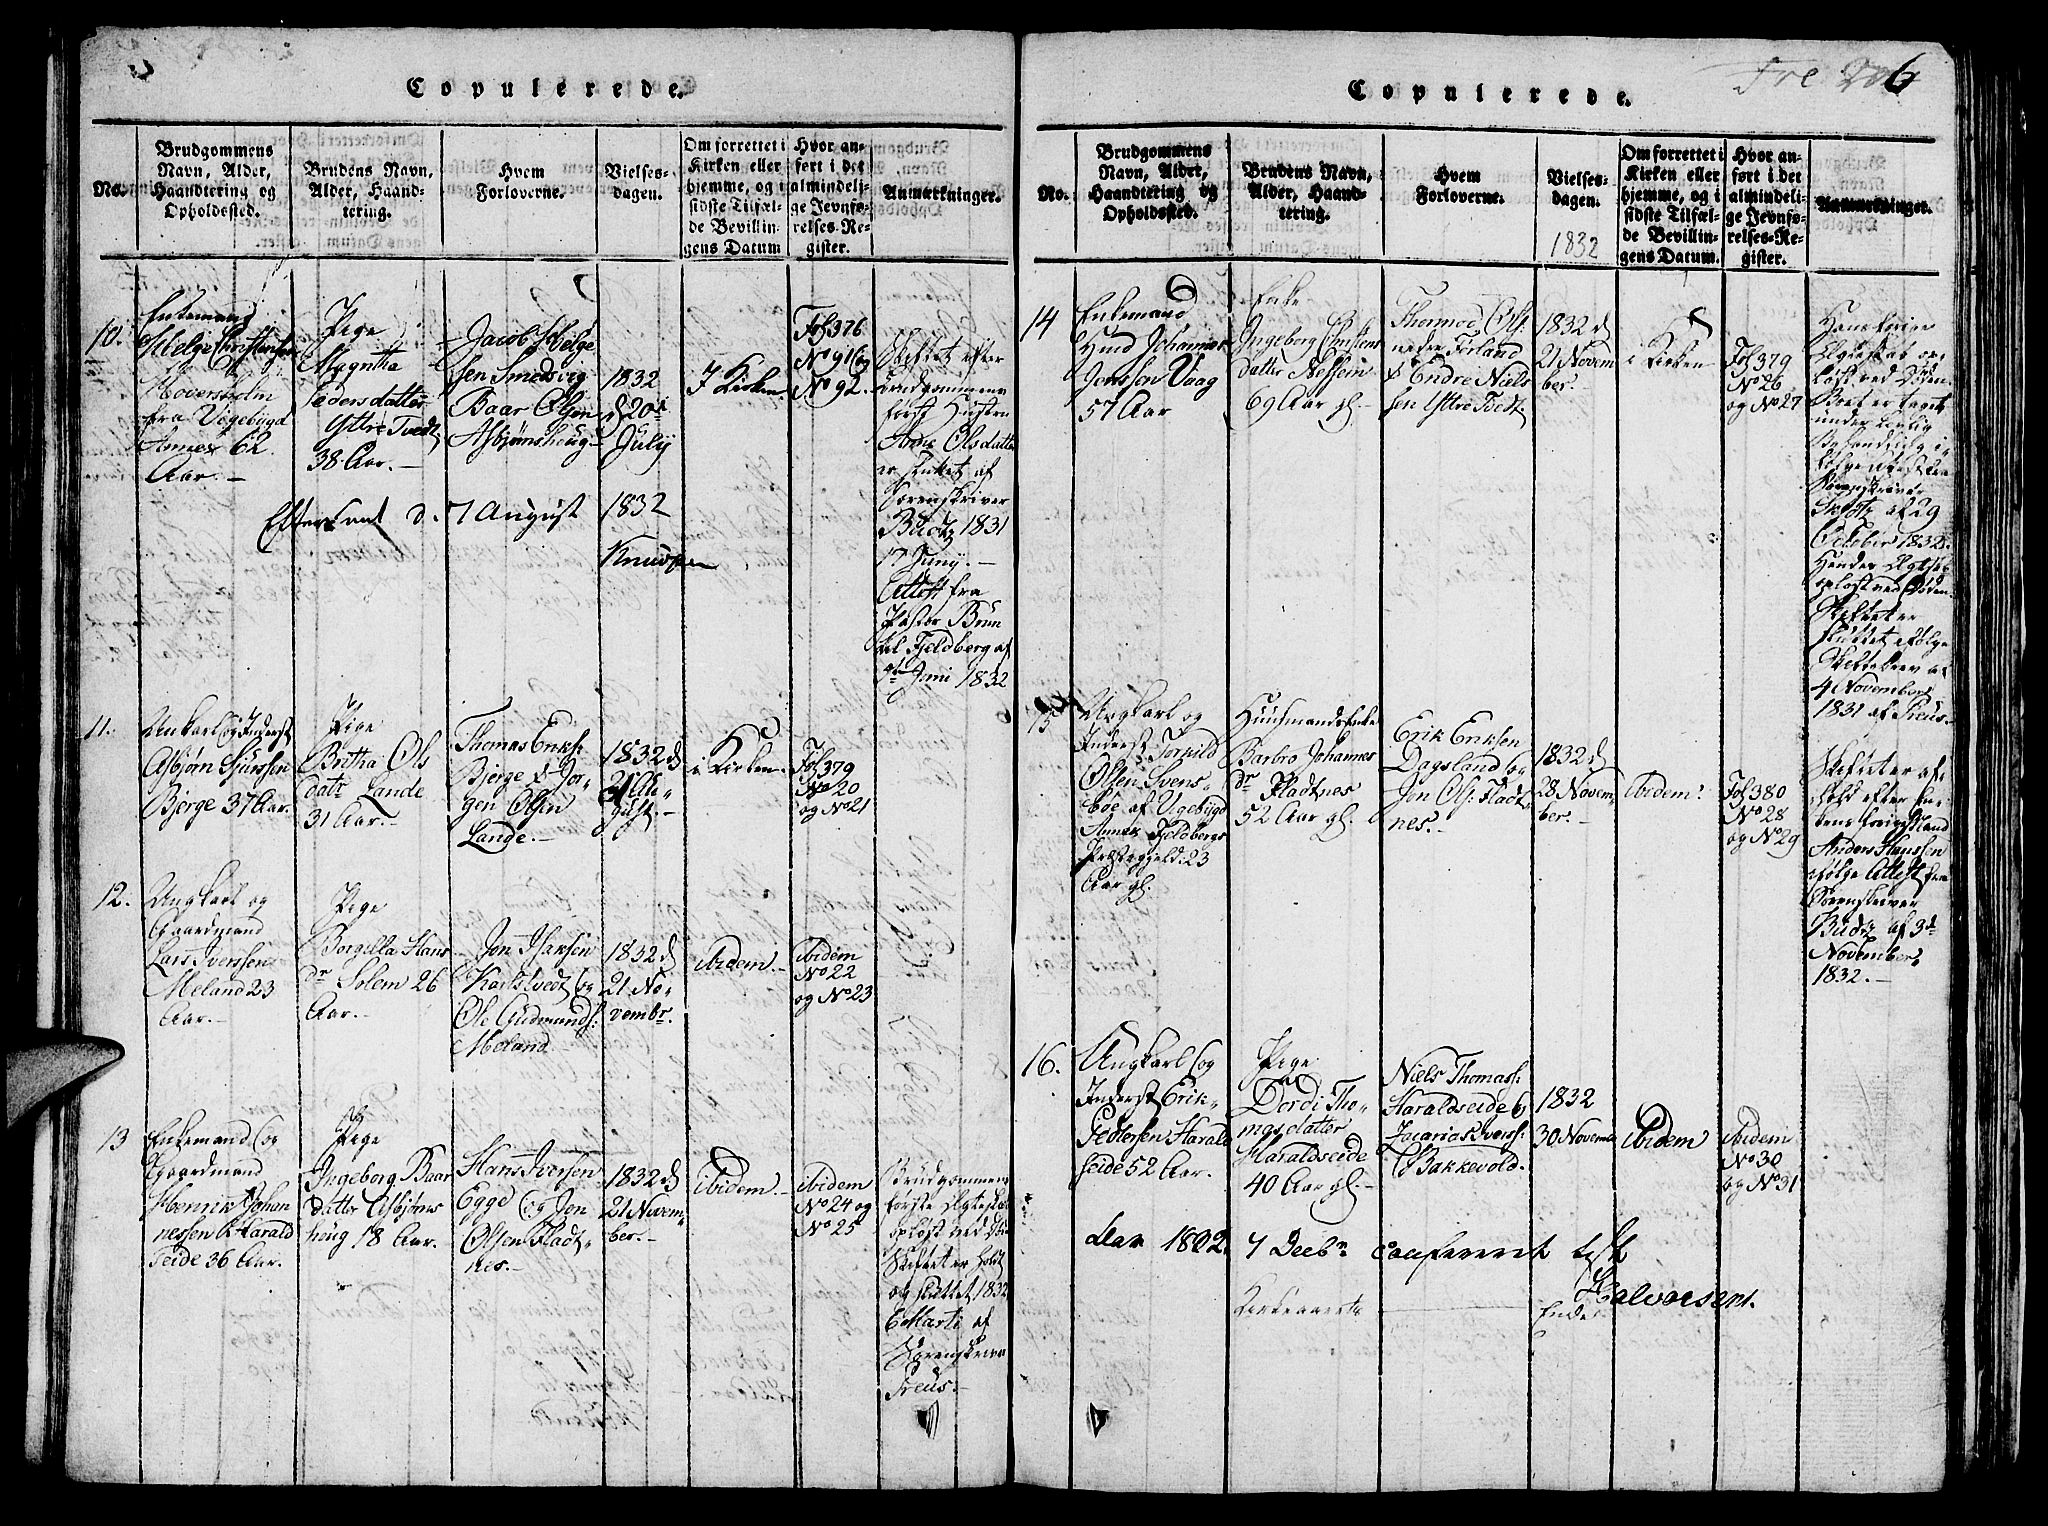 Copulerede.
No.
Brudgommens
Navn, Alder,
Haandtering og
Opholdssted.
Brudens Navn,
Alder, Haand-
tering.
Hvem
Forloverne.
Vielses-
dagen.
Om forrettet i
Kirken eller
hjemme, og i
sidste Tilfæl-
de Bevillin-
gens Datum
Hvor an-
ført i det
almindeli-
ge Jevnfø-
relses-Re-
gister.
Anmærkninger.
10.
Enkemand
Helge Christensen
fra
Annex 62
Aar.
Pige
Magntha
Pedersdatter
Yttre Tvedt
38 Aar.
Jacob Helge
sen Smedsvig
Baar Olsen
Asbjønshoug
1832
d 20de
July
I Kirken
Fol 376
No 91 og
No 92.
Skiftet efter
Brudgommens
første Hustru
Anne Olsdatter
er sluttet af
Sorenskriver
Budtz 1831
17 Juny.
Attest fra
Pastor Brun
til Fjeldberg af
Juni 1832
Efterseet d. 7 August 1832
Knudsen
11.
Unkarl og Inderst
Asbjørn Sjurssen
Bjerge 37 Aar.
Pige
Britha Ols
datr Lande
31 Aar.
Thomas Eriks:
Bjerge & Jør-
gen Olsen
Lande.
1832 d
31 Au-
gust.
i Kirken
Fol 379
No 20
og No 21
12.
Ungkarl og
Gaardmand
Lars Iverssen
Meland 23
Aar.
Pige
Borgilla Hans
dr Solem 26
Aar.
Jon Isaksen
Karlstvedt og
Ole Gudmunds:
Meland
1832 d
21 No-
vembr.
ibidem.
ibidem
No 22
og No 23
13
Enkemand og
Gaardmand
Henrik Johan
nessen Harald
seide 36 Aar.
Pige
Ingeborg Baar
datter Asbjøns
houg 18 Aar.
Hans Iversen
Egge og Jon
Olsen Fladt-
nes.
1832 d
21 Novem-
ber.
ibidem.
ibidem
No 24 og
No 25
Brudgommens
første Ægteskab
opløst ved Dø
Skiftet er holdt
og sluttet 1832
6 Marti af
Sorenskriver
Preus.
Fre 206
Copulerede.
No.
Brudgommens
Navn, Alder,
Haandtering og
Opholdssted.
Brudens Navn,
Alder, Haand-
tering.
Hvem
Forloverne.
Vielses-
dagen.
1832
Om forrettet i
Kirken eller
hjemme, og i
sidste Tilfæl-
de Bevillin-
gens Datum.
Hvor an-
ført i det
almindeli-
ge Jevnfø-
relses-Re-
gister.
Anmærkninger.
14
Enkemand
Johannes
Jonssen Vaag
57 Aar
Enke
Ingeborg Christens
datter Nessein
69 Aar gl.
Thormod Ols:
nedre Førland
& Endre Niels
sen Yttre Tvedt
1832 d
21 Novem
ber.
i Kirken
Fol 379
No 26
og No 27
Hans forige
Ægteskab op-
løst ved Døden.
Boet er taget
under lovlig
Behandling i-
følge Attest fra
Sorenskriver
af 29
October 1832.
Hendes Ægtesk
opløst ved Døden
Skiftet er
sluttet ifølge
Skiftebrev af
4 November
1831 af Preus.
15
Ungkarl og
Inderst Torkild
Olsen Svens-
boe af
Annex Fjeldbergs
Præstegjeld 23
Aar gl.
Huusmands Enke
Barbro Johannes
dr Fladtnes
52 Aar gl.
Erik Eriksen
Dagsland og
Jon Ols: Fladt
nes.
1832 d
28 Novem-
ber.
ibidem.
Fol 380
No 28
og No 29
Skiftet er af-
hold efter Bru-
dens forige Mand
Anders Hanssen
ifølge Attest fra
Sorenskriver
Budtz af 3de
November
1832.
16.
Ungkarl og
Inderst Erik
Pedersen Harald
seide 52 Aar.
Pige
Dordi Tho-
masdatter
Haraldseide
40 Aar gl.
Niels Thomass:
Haraldseide &
Zacarias Iverss:
Bakkevold.
1832
30 Novembr
ibidem
ibidem
No 30
og No 31
den 1832. 7 Decbr conferert
Halvorsen.